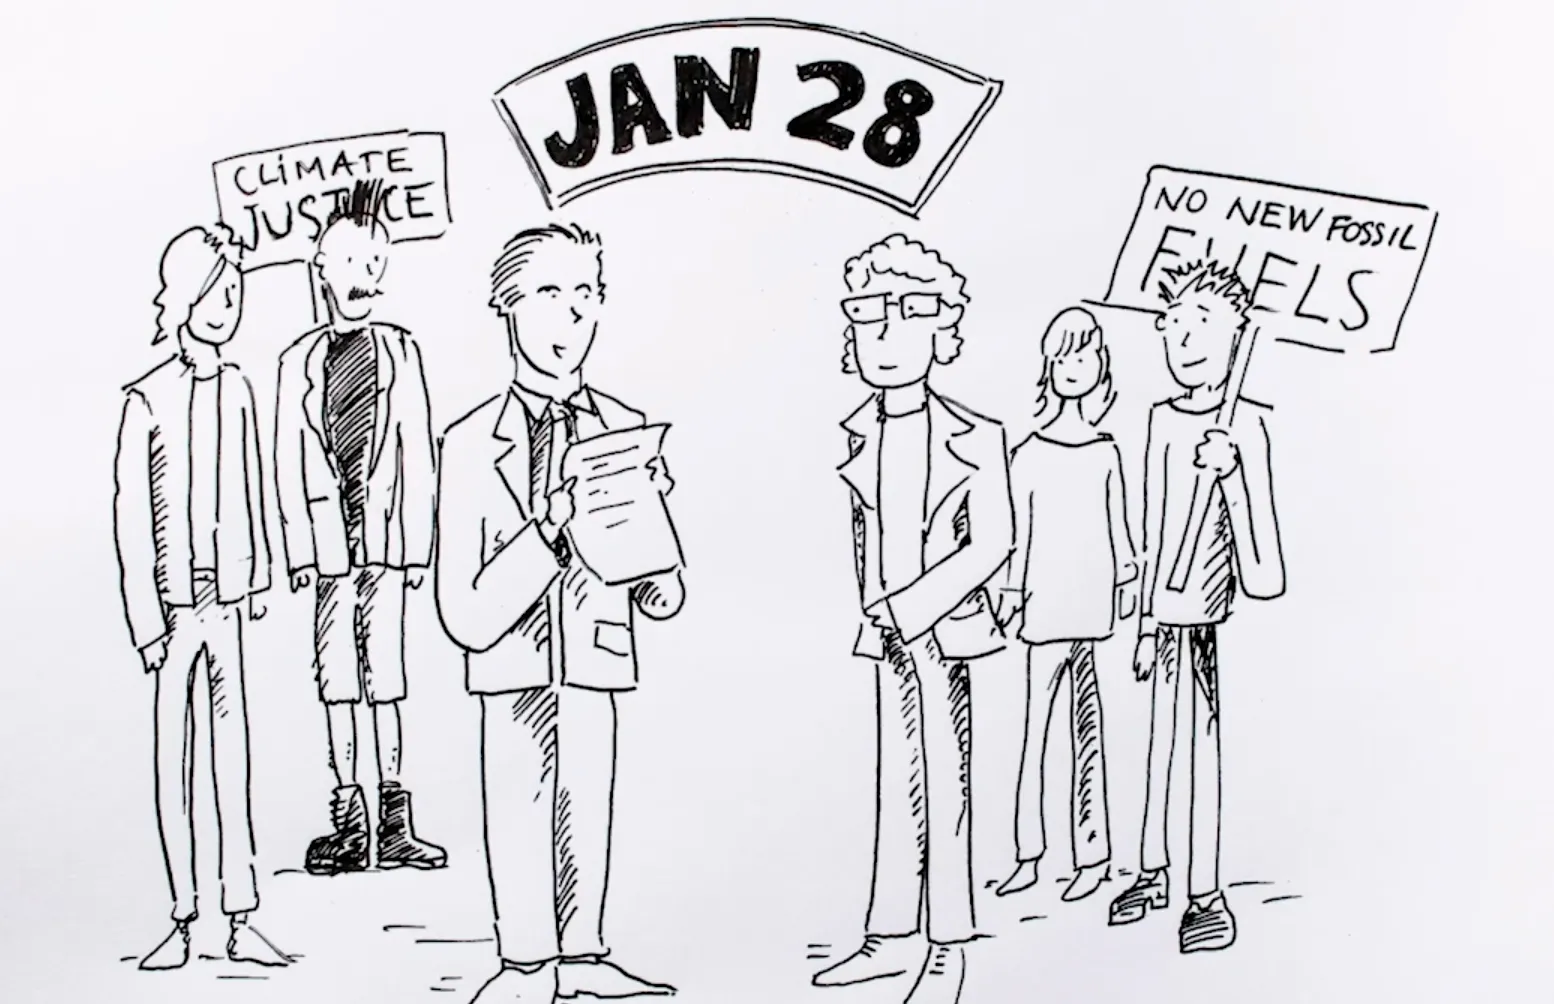 JAN 28
CLiMATE
JUSTICE
NO NEW FOSSIL
FUELS